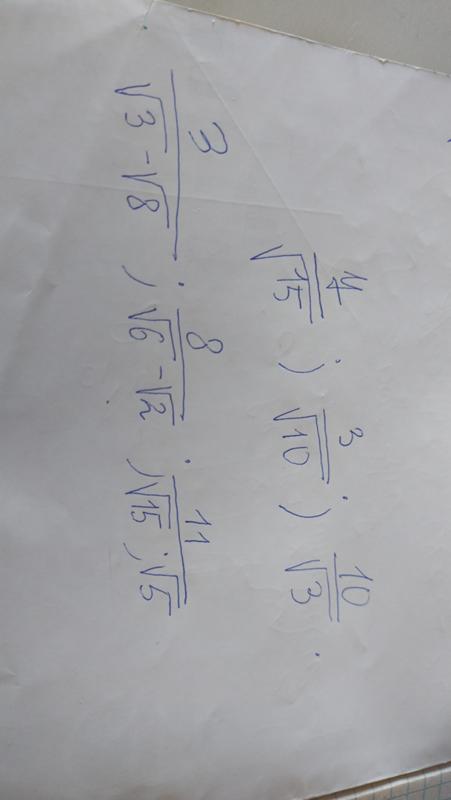 4/√15 ; 3/√10 ; 10/√3 .
3/(√3 - √8) ; 8/(√6 - √2) ; 11/(√15 ; √5)